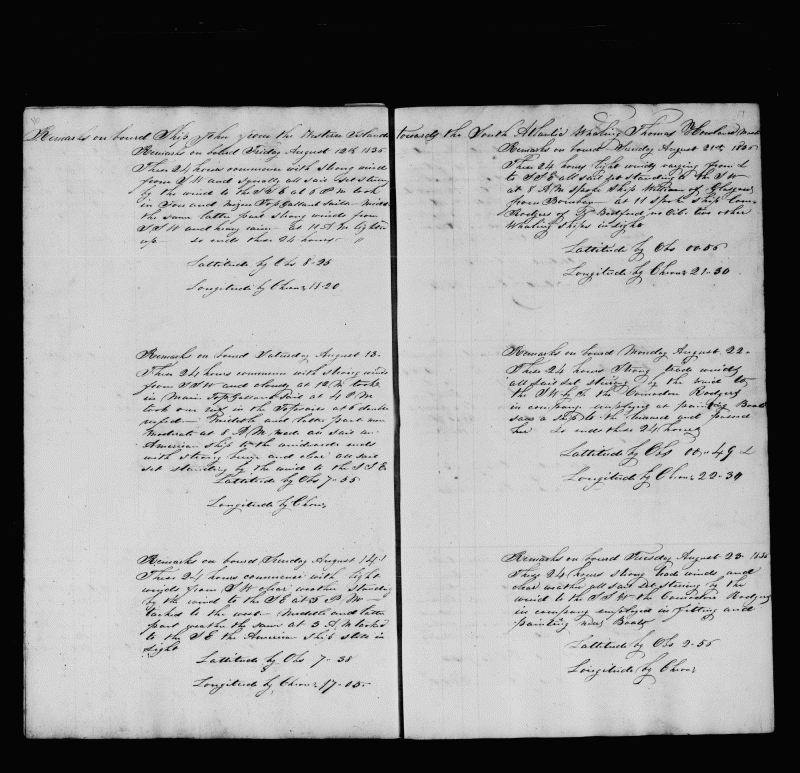 Remarks on board Ship John from the Western Islands
Remarks on board Friday August 12th 1836
These 24 hours commence with strong winds
from SW and squally all sail set steering
by the wind to the SSE at 6 PM took
in Fore and Mizen TopGallant Sails Middle
the same latter part strong winds from
SSW and heavy rain at 11 AM lighten
up so ends these 24 hours
Lattitude by Obs 8-25
Longitude by Chron 18-20
Remarks on board Saturday August 13
These 24 hours commence with strong winds
from SSW and cloudy at 12 M took
in Main TopGallant Sail at 4 PM
took one reef in the Topsails at 6 double
reefed Middle and latter part more
Moderate at 8 AM made all sail an
American ship to the windward ends
with strong breeze and clear all sail
set standing by the wind to the SSE
Lattitude by Obs 7-55
Longitude by Chron
Remarks on board Sunday August 14
These 24 hours commence with light
winds from SW clear weather standing
by the wind to the SE at 5 PM
tacked to the west Middle and latter
part weather the same at 3 AM tacked
to the SE the American Ship still in
sight
Lattitude by Obs 7-38
Longitude by Chron 17-05
towards the South Atlantic Whaling Thomas Howland
Remarks on board Sunday August 21st 1836
These 24 hours light winds varying from S
to SSE all sail set standing to the SW
at 8 AM spoke Ship William of Glasgow
from Bombay at 11 spoke ship Com
Rodgers of N Bedford no Oil two other
Whaling ships in sight
Lattitude by Obs 00-55
Longitude by Chron 21-30
Remarks on board Monday August 22
These 24 hours Strong trade winds
all sail set steering by the wind to
the SW the Comodore Rodgers
in company employed at painting Boats
saw a ship to the leeward and passed
her so ends these 24 hours
Lattitude by Obs 00-49 S
Longitude by Chron 22-34
Remarks on board Tuesday August 23 1836
These 24 hours strong trade winds and
clear weather all sail set steering by the
wind to the SSW the Comodore Rodgers
in company employed in fitting and
painting new Boats
Lattitude by Obs 2-55
Longitude by Chron